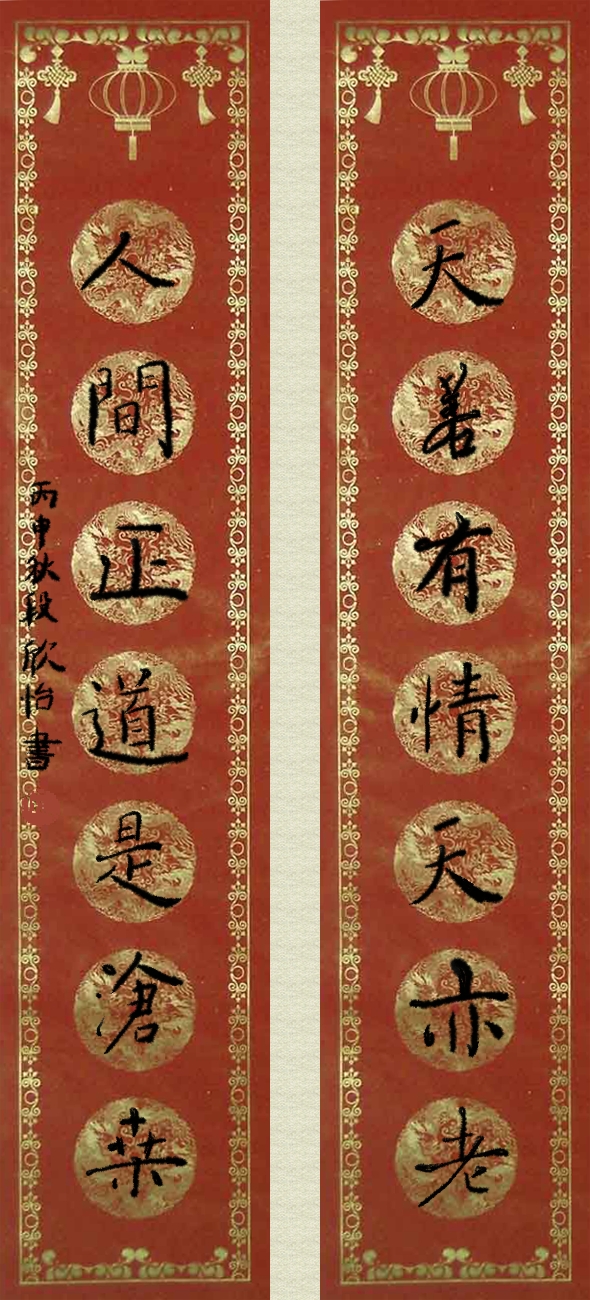 天若有情天亦老
人間正道是滄桒
丙申秋段欣怡書